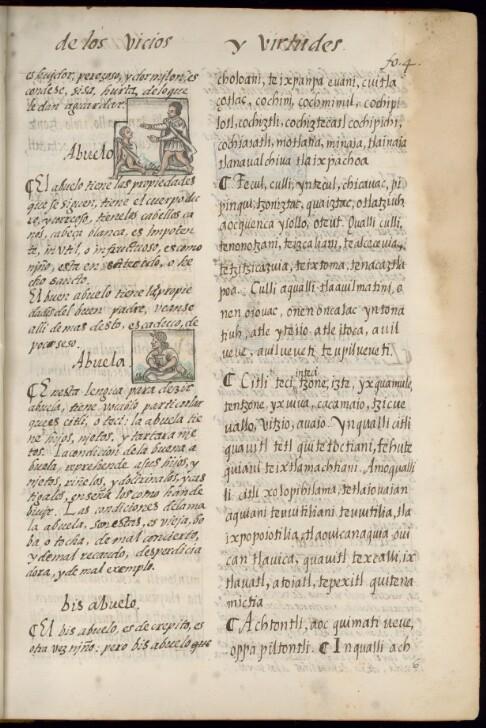 de los Vicios y virtudes
fo. 4.
es huidor, perezoso, y dormilon, es
conde se, sisa, hurta, de lo que
le dan a guardar.
Abuelo
¶ El abuelo tiene las propiedades
que se siguen, tiene el cuerpo
y correoso, tiene los cabellos ca
nos, cabeça blanca, es impoten
te, inutil, o infructuoso, es como
niño, esta en
El buen abuelo tiene las propie
dades del buen padre, veanse
alli demas desto, es caduco, de
poco seso.
Abuela
¶ En esta lengua para dezir
abuela, tiene vocablo particular
que es citli, o teci: la abuela tie
ne hijos, nietos, y tartara nie
tos. La condicion de la buena a
buela, reprehende a sus hijos, y
nietos, riñelos, y doctrinalos, y cas
tigalos, enseña los como han de
biuir. Las condiciones de la ma
la abuela, son estas, es vieja, bo
ba o tocha, de mal concierto,
y de mal recaudo, desperdicia
dora, y de mal exemplo.
bis abuelo.
¶ El bis abuelo, es decrepito, es
otra vez niño: pero bis abuelo que
choloani, teixpanpa evani, cuitla
çotlac, cochini, cochmimil, cochipi
lotl, cochiztli, cochiztecatl cochipichi,
motlatia, minaia, tlainaia
tlanaualchiua tlaixpachoa
¶ Tecul, culli, yntecul, chicauac, pi
pinqui, tzoniztac, quaiztac, otlatziuh,
aocquenca yiollo, oteut. Qualli culli,
tenonotzani, teizcaliani,
tetzitzicazuia, teixtoma, tenacaztla
poa. Culli aqualli tlaauilmatini, o
nen oiouac, onen oncalac yn tona
tiuh, atle yteiio atle itoca, auil
ueue, auilueueti teupilueueti.
¶ Citli teci, inteci tzone, izte, yxquamule,
tentzone, yxuiua, cacamaio, tzicue
uallo, uitzio, auaio. Yn qualli citli
quauitl tetl quitetoctiani, tehute
quiani teixtlamachtiani. Amo qualli
li citli xolopihilama, tetlaiouaian
aquiani teuuitiliani teuuitilia, tla
ixpopoiotilia, tlaouicanaquia oui
can tlauica, quauitl texcalli, ix
tlauatl, atoiatl, tepexitl quitena
mictia
¶ Achtontli, aoc quimati ueue,
oppa piltontli. ¶ In qualli ach